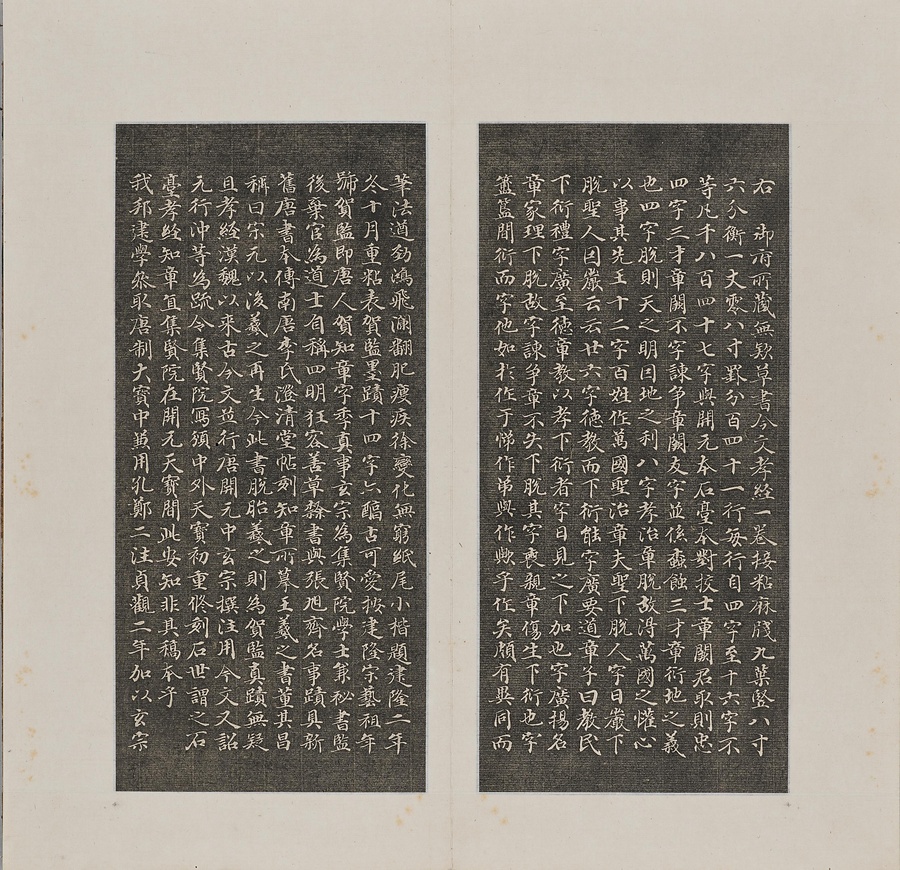 右　御府所藏無欵草書今文孝經一卷接粘麻牋九葉竪八寸
六分衡一丈零八寸罫分百四十一行每行自四字至十六字不
等凡千八百四十七字與開元本石臺本對挍士章闕君取則忠
四字三才章闕不字諫争章闕友字並係蠧蝕三才章衍地之義
也四字脫則天之明因地之利八字孝治章脫故淂萬國之懽心
以事其先王十二字百姓作萬國聖治章夫聖下脫人字日嚴下
脫聖人因嚴云云廿六字德教而下衍能字廣要道章子曰教民
下衍禮字廣至德章教以孝下衍者字日見之下加也字廣揚名
章家理下脫故字諫争章不失下脫其字喪親章傷生下衍也字
簠簋間衍而字他如於作于悌作弟與作歟乎作矣頗有異同而
筆法遒勁鴻飛澜翻肥瘦疾徐變化無窮紙尾小楷題建隆二年
冬十月重粘表賀監墨蹟十四字六䤃古可愛按建隆宗藝祖年
號賀監即唐人賀知章字季真事玄宗為集賢院學士兼祕書監
後棄官為道士自稱四明狂客善草隸書與張旭齊名事蹟具新
舊唐書本傳南唐李氏澄清堂帖刻知章所摹王羲之書董其昌
稱曰宋元以後羲之再生今此書脫胎羲之則為賀監真蹟無疑
且孝經漢魏以来古今文並行唐開元中玄宗撰注用今文又詔
元行沖等為疏令集賢院寫頒中外天寶初重修刻石世謂之石
臺孝經知章直集賢院在開元天寶間此安知非其稿本乎
我邦建學叅取唐制大寳中兼用孔鄭二注貞觀二年加以玄宗